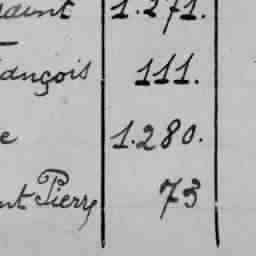 1.271.
ançois 111.
e 1.280.
nt Pierre 73